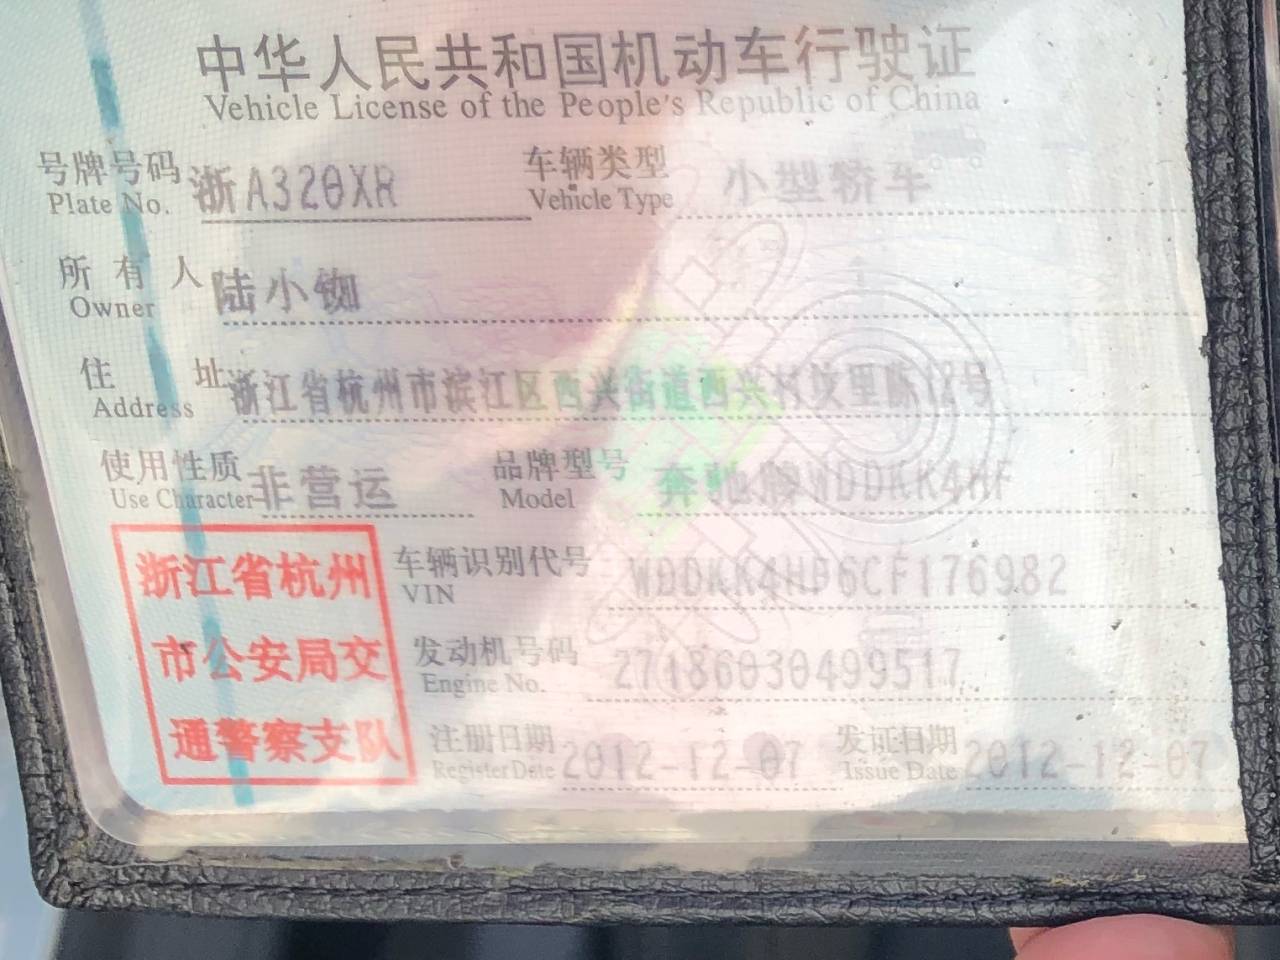 中华人民共和国机动车行驶证
Vehicle License of the People's Republic of China
号牌号码 浙A320XR 车辆类型 小型轿车
Plate No. Vehicle Type
所有人 陆小铷
Owner
住址 浙江省杭州市滨江区西兴街道西兴 坟里陈12号
Address
使用性质 非营运 品牌型号 奔驰牌WDDKK4HF
Use Character Model
浙江省杭州
市公安局交
通警察支队
车辆识别代号 WDDKK4HF6CF176982
VIN
发动机号码 27186030499517
Engine No.
注册日期 2012-12-07 发证日期 2012-12-07
Register Date Issue Date